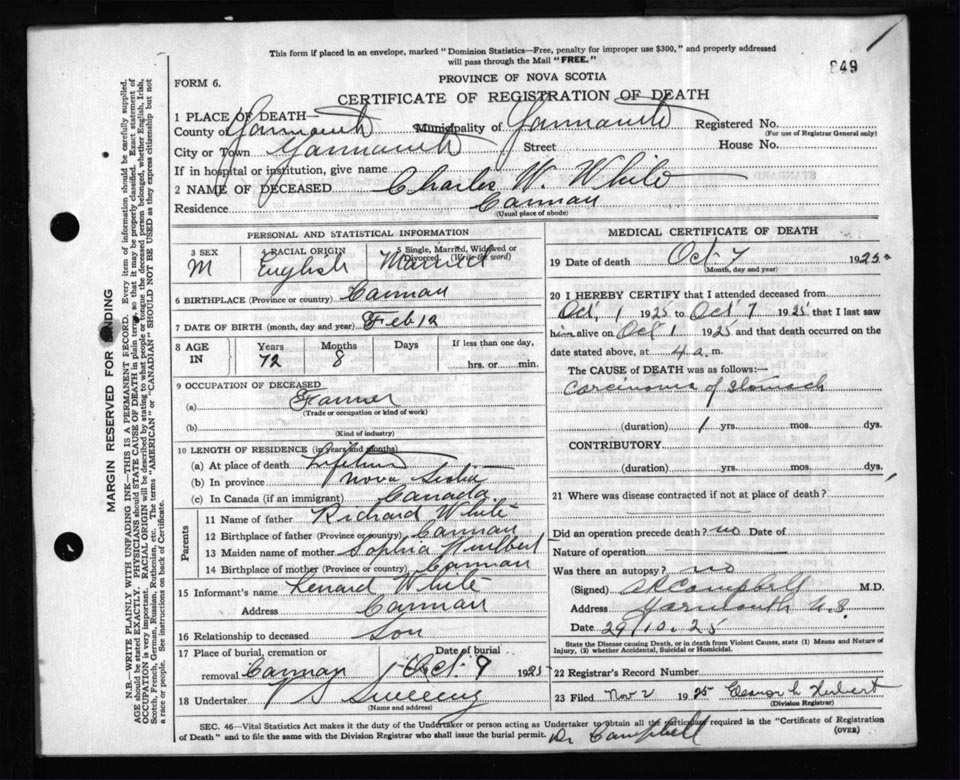 This form if placed in an envelope, marked "Dominion Statistics—Free, penalty for improper use $300," and properly addressed
will pass through the Mail "FREE."
849
PROVINCE OF NOVA SCOTIA
FORM 6.
CERTIFICATE OF REGISTRATION OF DEATH
1 PLACE OF DEATH—
County of Yarmouth Municipality of Yarmouth Registered No.
(For use of Registrar General only)
City or Town Yarmouth Street House No.
If in hospital or institution, give name
2 NAME OF DECEASED Charles W. White
Residence Carman
(Usual place of abode)
PERSONAL AND STATISTICAL INFORMATION
3 SEX 4 RACIAL ORIGIN 5 Single, Married, Widowed or Divorced. (Write the word)
M English Married
6 BIRTHPLACE (Province or country) Carman
7 DATE OF BIRTH (month, day and year) Feb 12
8 AGE IN Years Months Days If less than one day,
72 8 hrs. or min.
9 OCCUPATION OF DECEASED
(a) Farmer
(Trade or occupation or kind of work)
(b)
(Kind of industry)
10 LENGTH OF RESIDENCE (in years and months)
(a) At place of death Lifetime
(b) In province Nova Scotia
(c) In Canada (if an immigrant) Canada
Parents
11 Name of father Richard White
12 Birthplace of father (Province or country) Carman
13 Maiden name of mother Sophia Hurlbert
14 Birthplace of mother (Province or country) Carman
15 Informant's name Lenard White
Address Carman
16 Relationship to deceased Son
17 Place of burial, cremation or Date of burial
removal Carman Oct 9 1925
18 Undertaker V S Sweeny
(Name and address)
MEDICAL CERTIFICATE OF DEATH
19 Date of death Oct 7 1925
(Month, day and year)
20 I HEREBY CERTIFY that I attended deceased from
Oct 1 1925 to Oct 7 1925 that I last saw
him alive on Oct 1 1925 and that death occurred on the
date stated above, at 4 a. m.
The CAUSE of DEATH was as follows:—
Carcinoma of Stomach
(duration) 1 yrs. mos. dys.
CONTRIBUTORY
(duration) yrs. mos. dys.
21 Where was disease contracted if not at place of death?
Did an operation precede death? no Date of
Nature of operation
Was there an autopsy? no
(Signed) A R Campbell M.D.
Address Yarmouth N.S.
Date 29/10.25
State the Disease causing Death, or in Death from Violent Causes, state (1) Means and Nature of
Injury, (2) whether Accidental, Suicidal or Homicidal.
22 Registrar's Record Number
23 Filed Nov 2 1925 Eleanor L Herbert
(Division Registrar)
SEC. 46—Vital Statistics Act makes it the duty of the Undertaker or person acting as Undertaker to obtain all the particulars required in the "Certificate of Registration
of Death" and to file the same with the Division Registrar who shall issue the burial permit. Dr Campbell
(OVER)
MARGIN RESERVED FOR BINDING
N.B.—WRITE PLAINLY WITH UNFADING INK—THIS IS A PERMANENT RECORD. Every item of information should be carefully supplied.
AGE should be stated EXACTLY. PHYSICIANS should STATE CAUSE OF DEATH in plain terms, so that it may be properly classified. Exact statement of
OCCUPATION is very important. RACIAL ORIGIN will be described by stating to what people or tongue the deceased person belonged, whether English, Irish,
Scotch, French, German, Russian, Ruthenian, etc. The terms "AMERICAN" or "CANADIAN" SHOULD NOT BE USED as they express citizenship but not
a race or people. See instructions on back of Certificate.